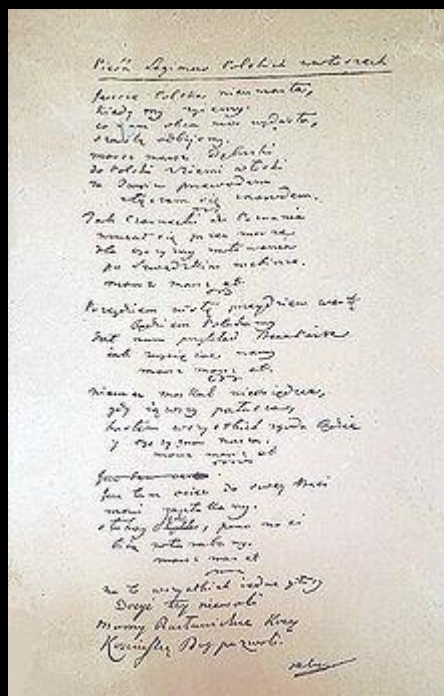 Pieśń Legionów Polskich we Włoszech
Jeszcze Polska nie umarła,
kiedy my żyjemy.
co nam obca moc wydarła,
szablą odbijemy.
marsz marsz Dąbrowski
do Polski z ziemi włoski
za Twoim przewodem
złączem się z narodem.
Jak Czarnecki do Poznania
wracał się przez morze
dla ojczyzny ratowania
po Szwedzkim
marsz marsz et
Przejdziem Wisłę przejdziem Wartę
będziem Polakami
dał nam przykład Bonaparte
jak zwyciężać mamy
marsz marsz et.
niemiec moskal nieosiędzie,
gdy jąwszy pałasza,
hasłem wszystkich zgoda będzie
y ojczyzna nasza.
marsz marsz et
Już tam ociec do swey Basi
mówi zapłakany.
słuchay, pono nasi
biją w tarabany.
marsz marsz et
na to wszystkich iedne głosy
Dosyć tey niewoli
mamy Racławickie Kosy
Kościuszkę Bóg pozwoli.